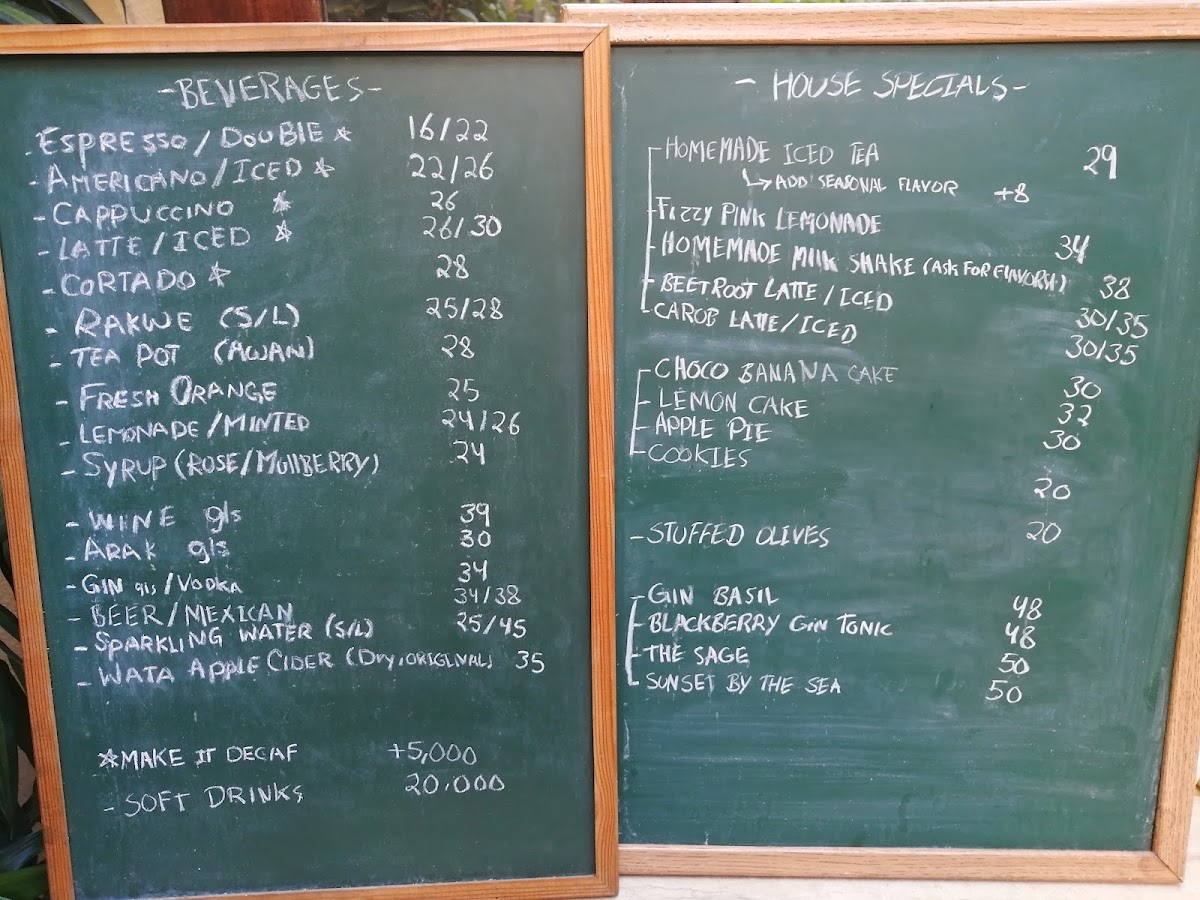 -BEVERAGES-
- ESPRESSO/DOUBLE ☆ 16/22
- AMERICANO/ICED ☆ 22/26
- CAPPUCCINO ☆ 26
- LATTE/ICED ☆ 26/30
- CORTADO ☆ 28
- RAKWE (S/L) 25/28
- TEA POT (AWAN) 28
- FRESH ORANGE 25
- LEMONADE/MINTED 24/26
- SYRUP (ROSE/MULLBERRY) 24
- WINE gls 39
- ARAK gls 30
- GIN gls/VODKA 34
- BEER/MEXICAN 34/38
- SPARKLING WATER (S/L) 25/45
- WATA APPLE CIDER (Dry, ORIGINAL) 35
☆MAKE IT DECAF +5,000
- SOFT DRINKS 20,000
- HOUSE SPECIALS-
- HOMEMADE ICED TEA 29
↳ ADD SEASONAL FLAVOR +8
- FIZZY PINK LEMONADE 34
- HOMEMADE MILK SHAKE (ASK FOR FLAVORS!) 38
- BEETROOT LATTE/ICED 30/35
- CAROB LATTE/ICED 30/35
- CHOCO BANANA CAKE 30
- LEMON CAKE 32
- APPLE PIE 30
- COOKIES 20
- STUFFED OLIVES 20
- GIN BASIL 48
- BLACKBERRY GIN TONIC 48
- THE SAGE 50
- SUNSET BY THE SEA 50